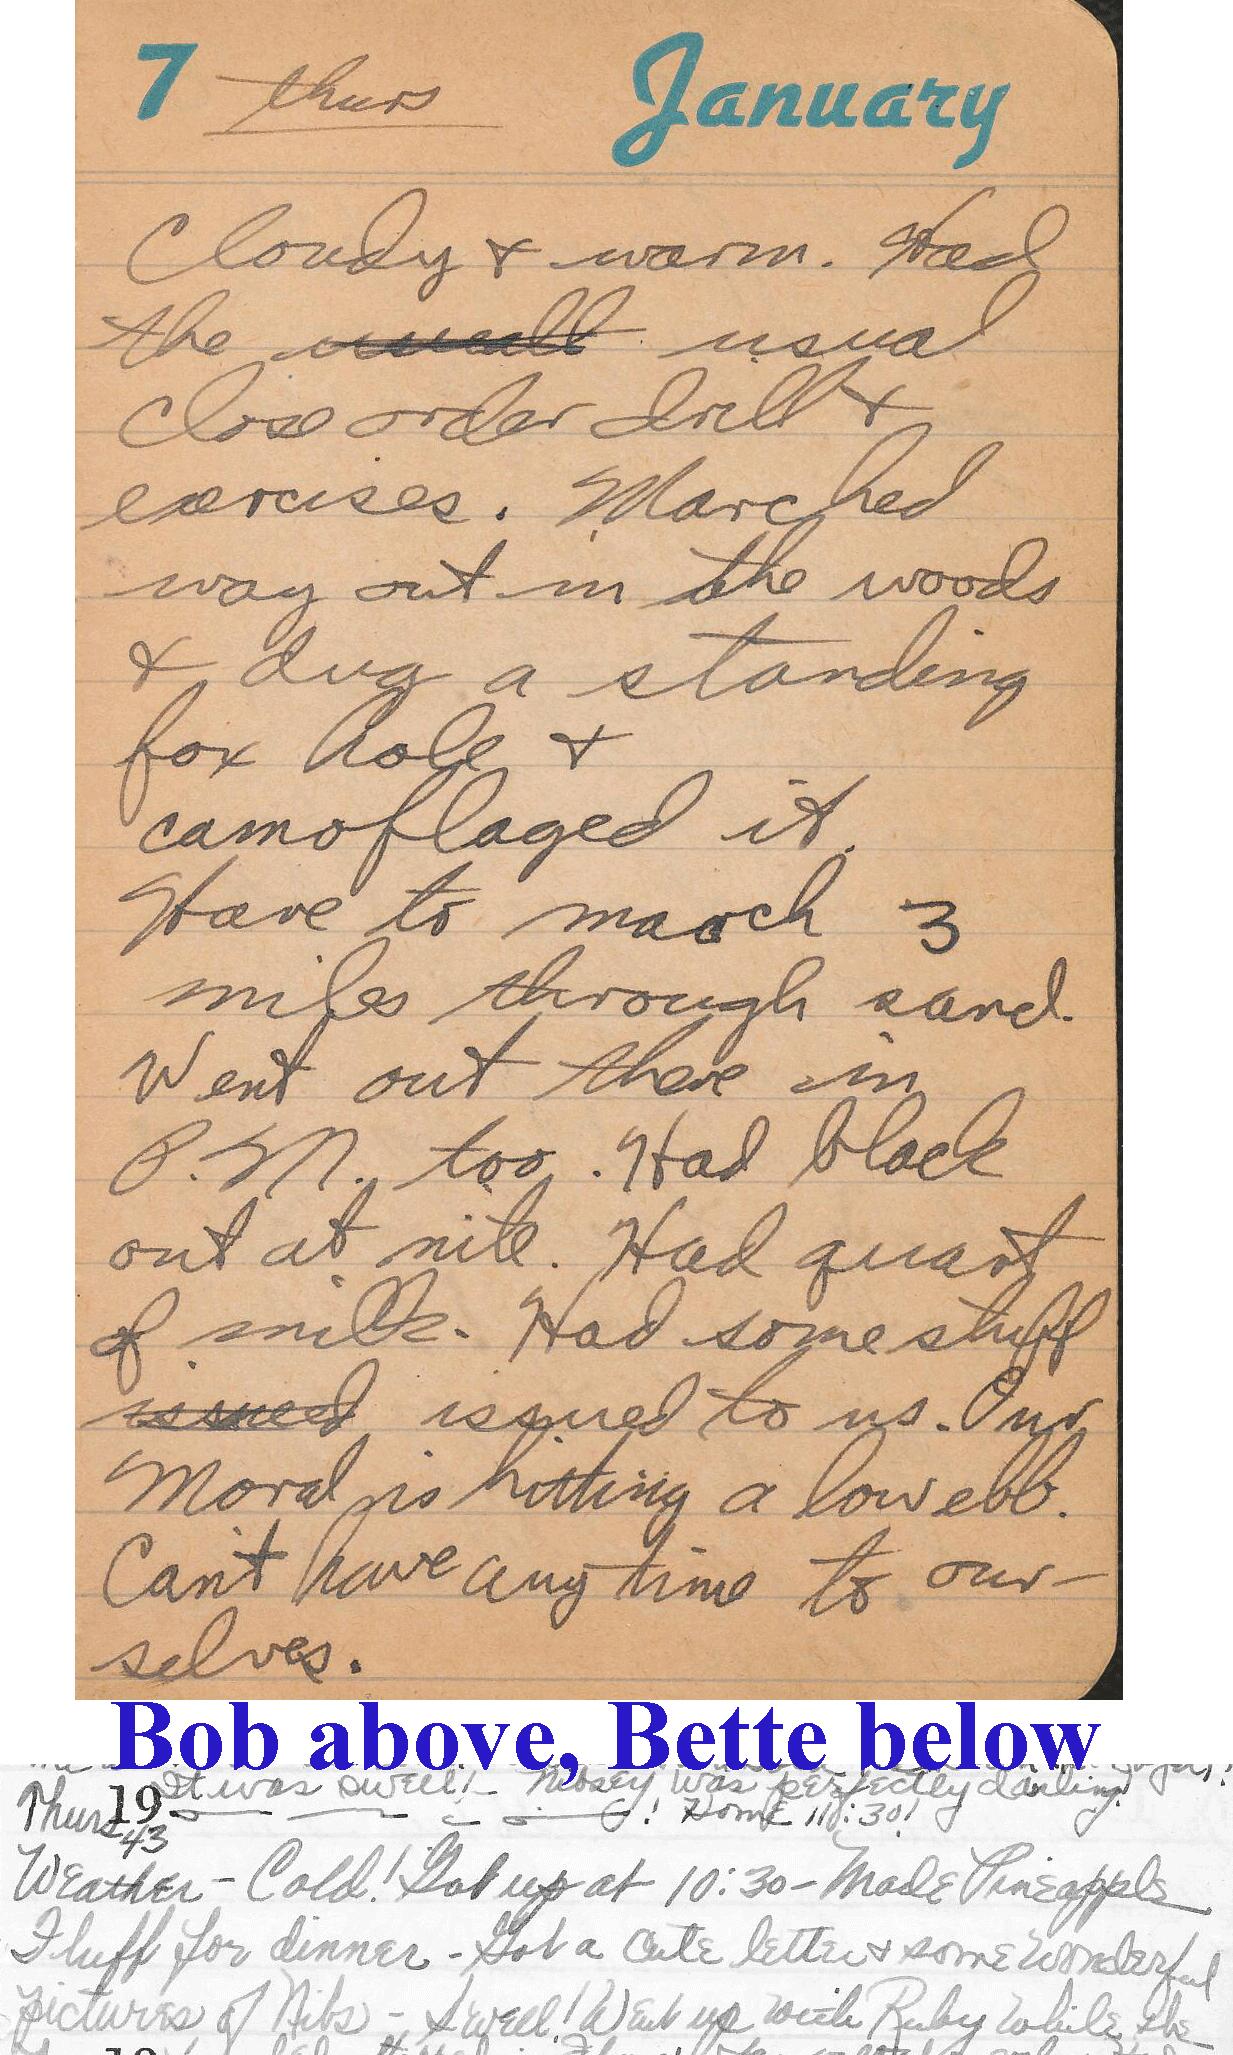 7 thurs January
Cloudy & warm. Had
the usuall usual
close order drill &
exercises. Marched
way out in the woods
& dug a standing
fox hole &
camoflaged it.
Have to march 3
miles through sand.
Went out there in
P.M. too. Had black
out at nite. Had quart
of milk. Had some stuff
issued issued to us. Our
Moral is hitting a low ebb.
Can't have any time to our-
selves.
Bob above, Bette below
It was swell! - Nibsey was perfectly darling!
Thurs 19 ! Home 11:30!
43
Weather - Cold! Got up at 10:30 - Made Pineapple
Fluff for dinner - Got a cute letter & some wonderful
pictures of Nibs - Swell! Went up with Ruby while she
19